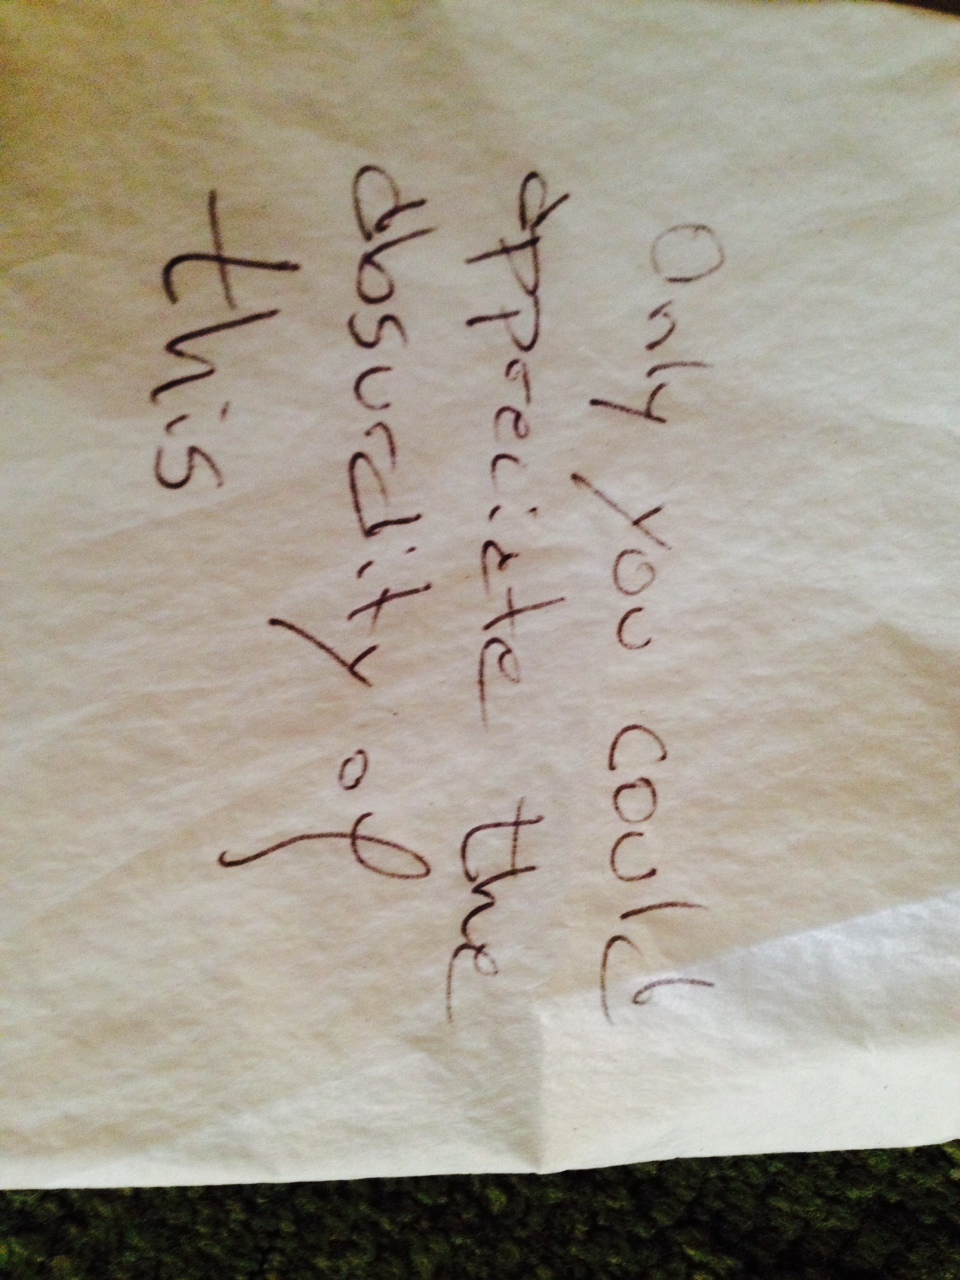 Only you could
appreciate the
absurdity of
this